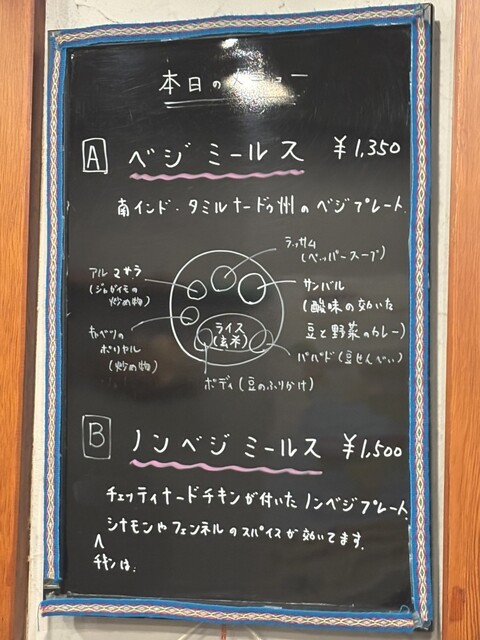 本日のメニュー
A ベジミールス ¥1,350
南インド・タミルナードゥ州のベジプレート.
ラッサム
(ペッパースープ)
アルマサラ
(ジャガイモの
炒め物)
サンバル
(酸味の効いた
豆と野菜のカレー)
キャベツの
ポリヤル
(炒め物)
ライス
(玄米)
パパド(豆せんべい)
ポディ(豆のふりかけ)
B ノンベジミールス ¥1,500
チェッティナードチキンが付いたノンベジプレート.
シナモンやフェンネルのスパイスが効いてます.
チキンは.